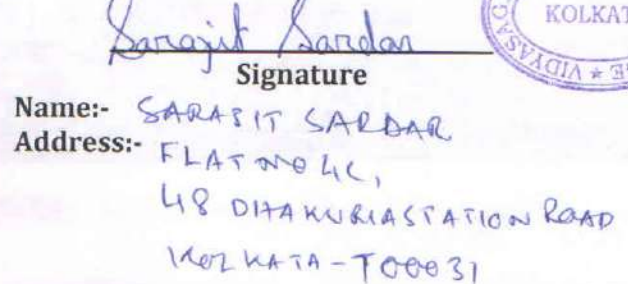 Sarajit Sardar
KOLKAT
VIDYASAG
Signature
Name:- SARAJIT SARDAR
Address:- FLAT NO 4C,
48 DHAKURIA STATION ROAD
KOLKATA - 700031